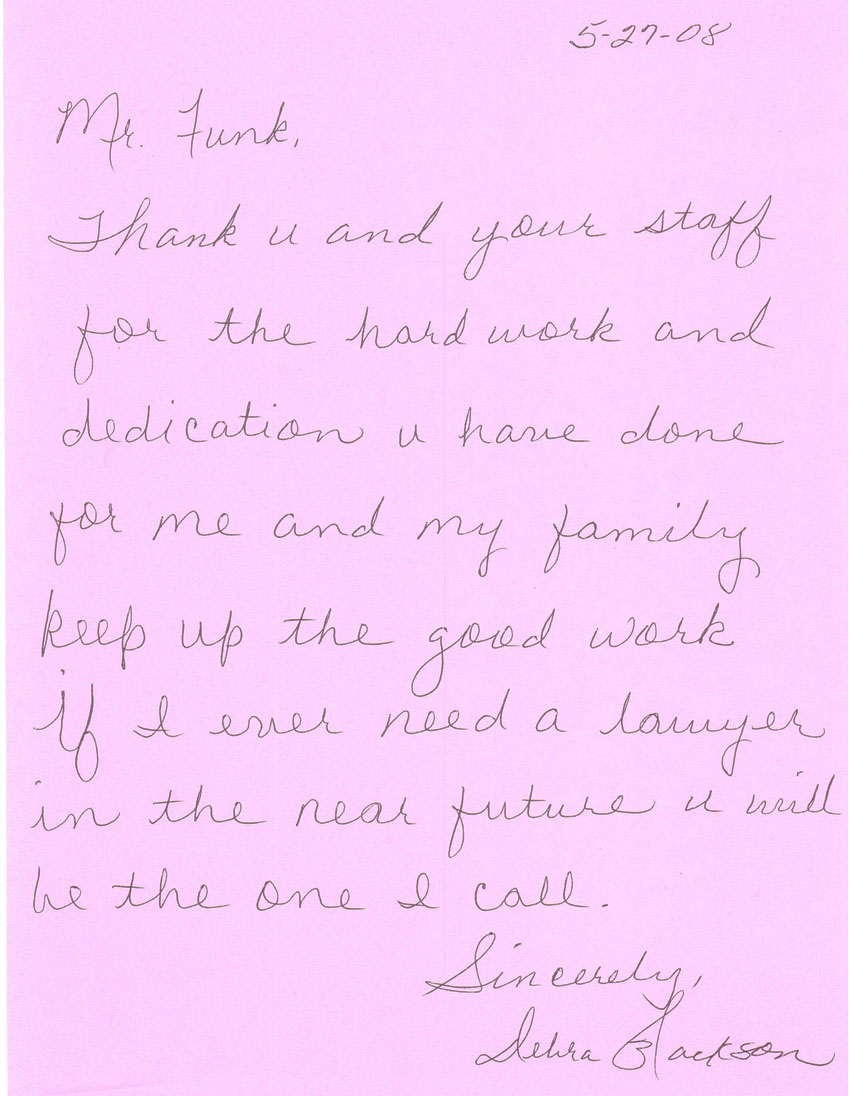 5-27-08
Mr. Funk,
Thank u and your staff
for the hard work and
dedication u have done
for me and my family
keep up the good work
if I ever need a lawyer
in the near future u will
be the one I call.
Sincerely,
Debra Jackson